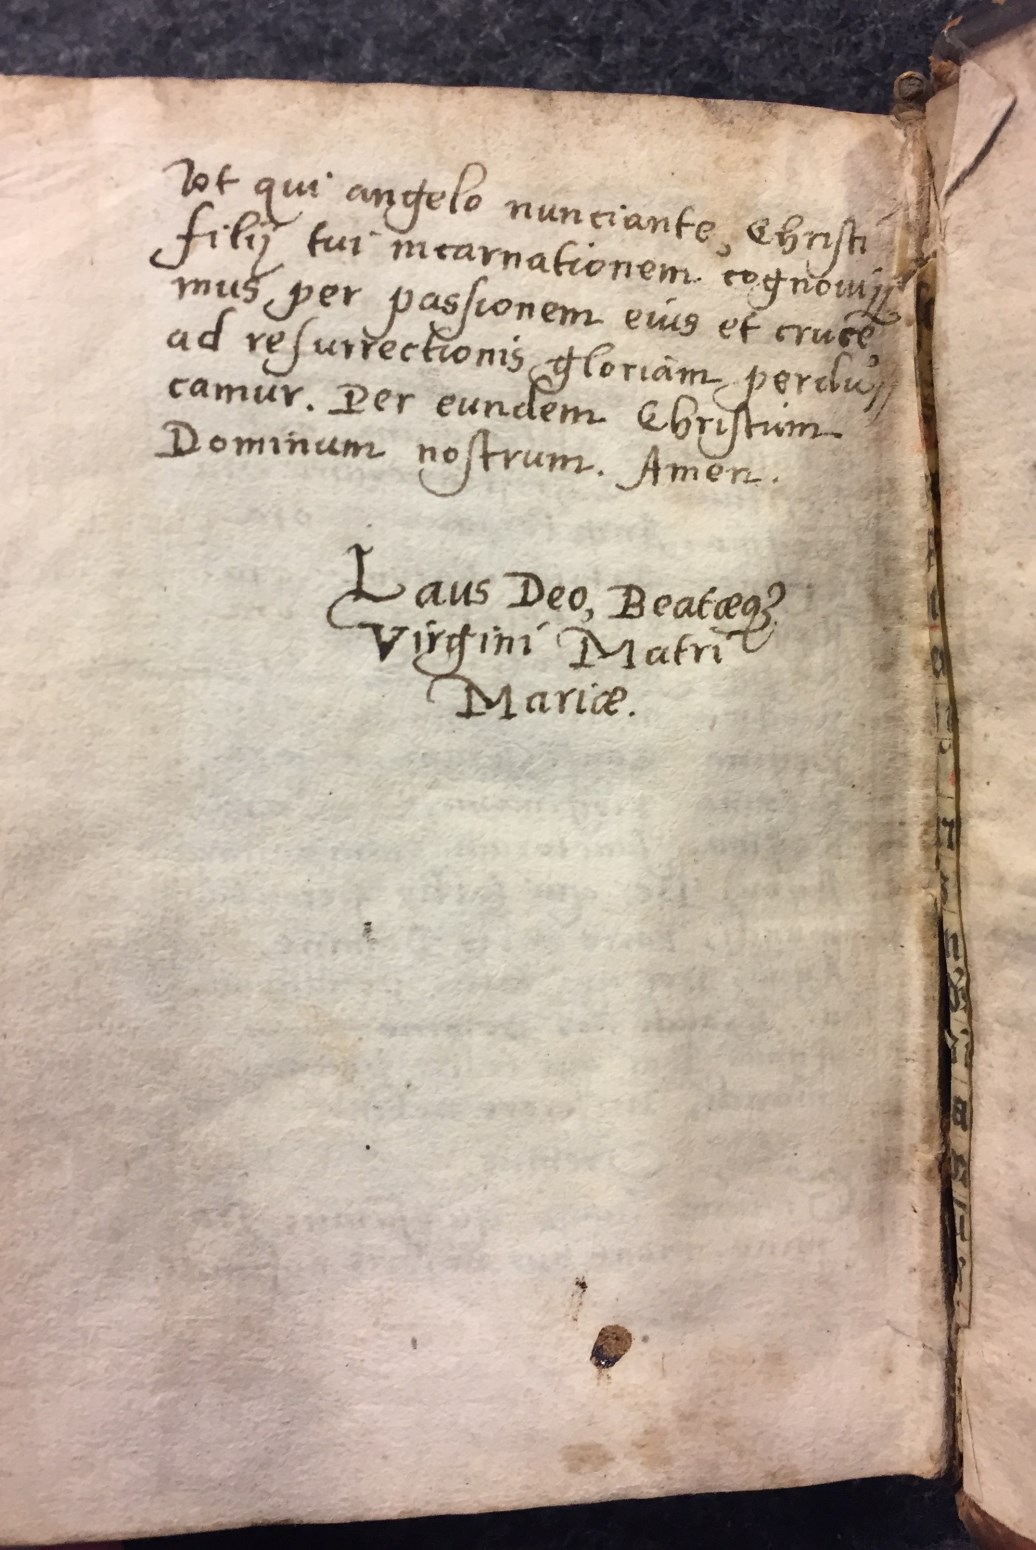 Vt qui angelo nunciante, Christi
filij tui incarnationem cognoui//
mus per passionem eius et crucē,
ad resurrectionis gloriam perdu//
camur. Per eundem Christum
Dominum nostrum. Amen.
Laus Deo, Beatæq₃
Virgini Matri
Mariæ.